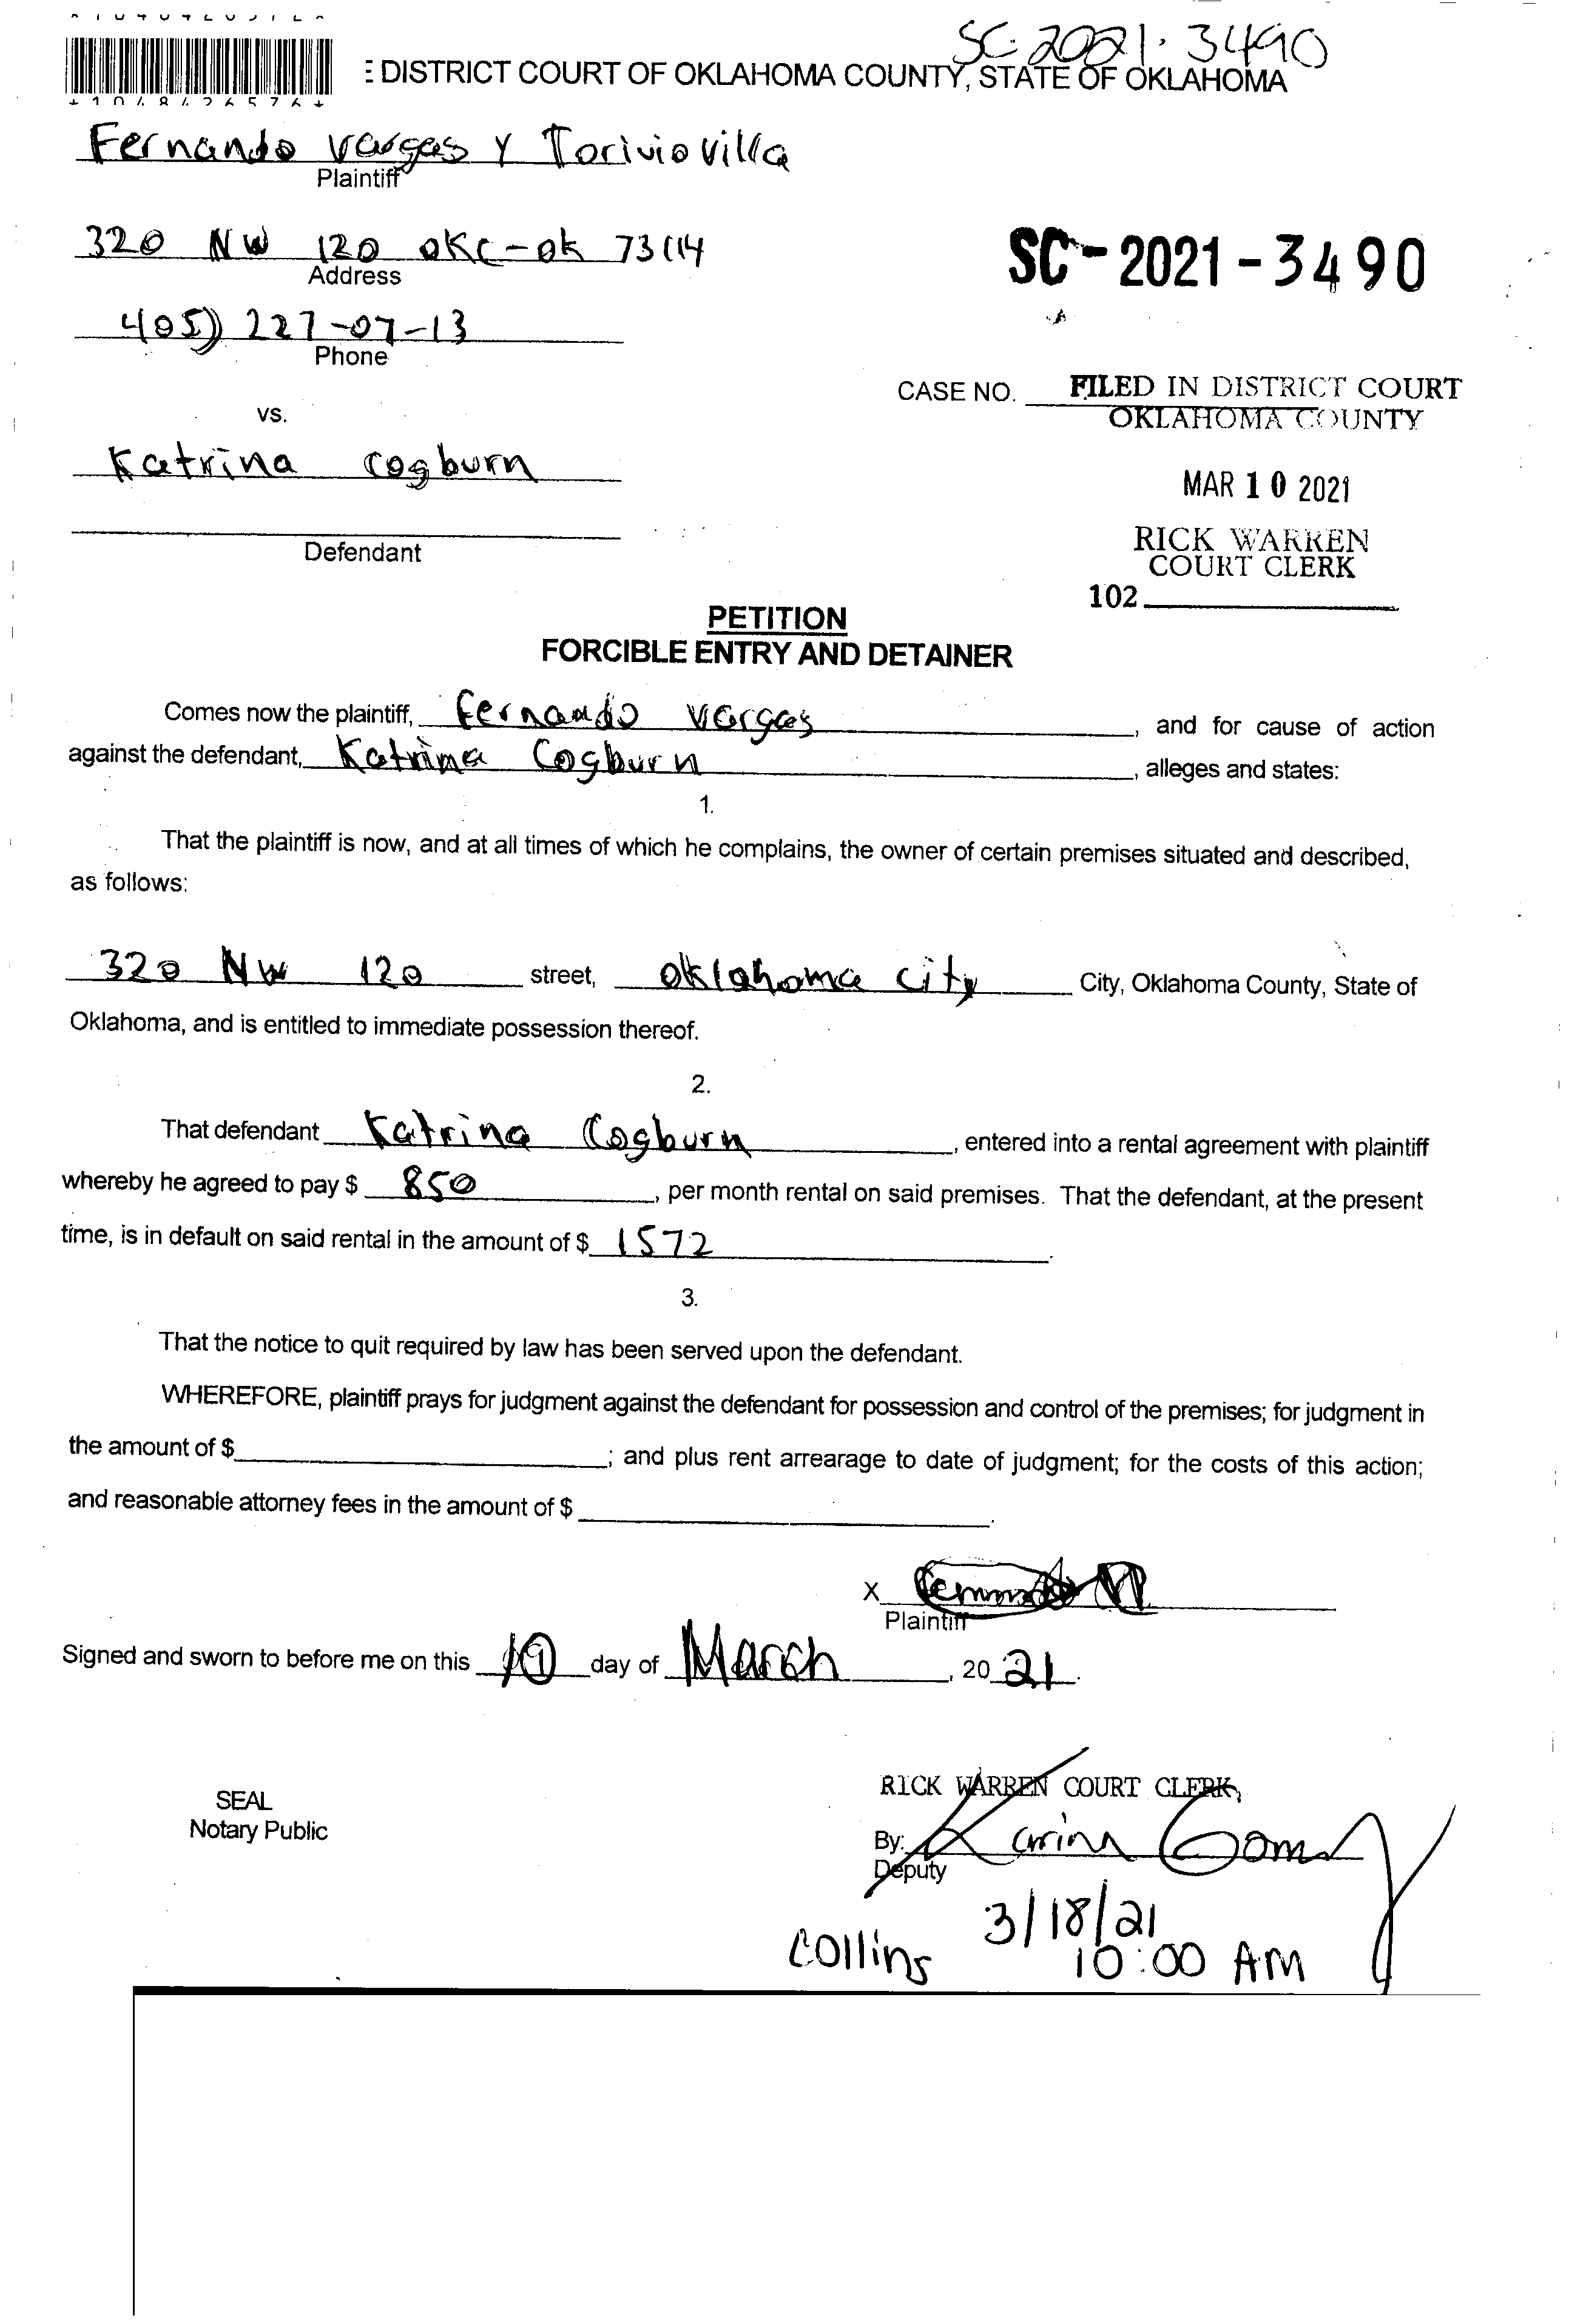 SC-2021-3490
E DISTRICT COURT OF OKLAHOMA COUNTY, STATE OF OKLAHOMA
Fernando Vargas Y Torivio villa
Plaintiff
320 NW 120 OKC-OK 73114
Address
SC-2021-3490
405) 227-07-13
Phone
CASE NO. FILED IN DISTRICT COURT
OKLAHOMA COUNTY
vs.
Katrina Cogburn
MAR 10 2021
Defendant
RICK WARREN
COURT CLERK
102
PETITION
FORCIBLE ENTRY AND DETAINER
Comes now the plaintiff, Fernando Vargas, and for cause of action
against the defendant, Katrina Cogburn, alleges and states:
1.
That the plaintiff is now, and at all times of which he complains, the owner of certain premises situated and described,
as follows:
320 NW 120 street, Oklahoma city City, Oklahoma County, State of
Oklahoma, and is entitled to immediate possession thereof.
2.
That defendant Katrina Cogburn, entered into a rental agreement with plaintiff
whereby he agreed to pay $ 850, per month rental on said premises. That the defendant, at the present
time, is in default on said rental in the amount of $ 1572.
3.
That the notice to quit required by law has been served upon the defendant.
WHEREFORE, plaintiff prays for judgment against the defendant for possession and control of the premises; for judgment in
the amount of $ ; and plus rent arrearage to date of judgment; for the costs of this action;
and reasonable attorney fees in the amount of $ .
X
Plaintiff
Signed and sworn to before me on this 10 day of March, 20 21.
RICK WARREN COURT CLERK,
SEAL
Notary Public
By: Karina Gomez
Deputy
3/18/21
Collins 10:00 AM